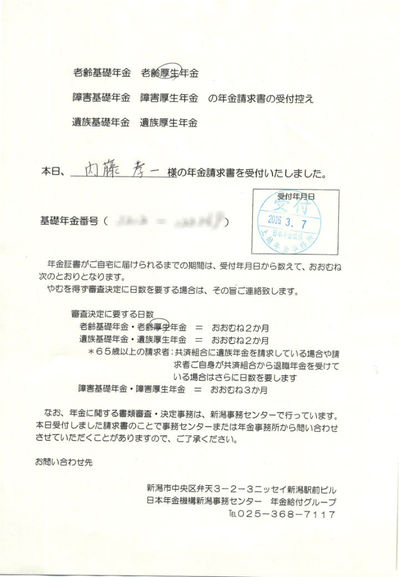 老齢基礎年金　老齢厚生年金
障害基礎年金　障害厚生年金　の年金請求書の受付控え
遺族基礎年金　遺族厚生年金
本日、　内藤　孝一　様の年金請求書を受付いたしました。
受付年月日
受付
2016. 3. 7
基礎年金番号（　　　　）
年金証書がご自宅に届けられるまでの期間は、受付年月日から数えて、おおむね
次のとおりとなります。
やむを得ず審査決定に日数を要する場合は、その旨ご連絡致します。
審査決定に要する日数
老齢基礎年金・老齢厚生年金　＝　おおむね２か月
遺族基礎年金・遺族厚生年金　＝　おおむね２か月
＊６５歳以上の請求者：共済組合に遺族年金を請求している場合や請
求者ご自身が共済組合から退職年金を受けて
いる場合はさらに日数を要します
障害基礎年金・障害厚生年金　＝　おおむね３か月
なお、年金に関する書類審査・決定事務は、新潟事務センターで行っています。
本日受付しました請求書のことで事務センターまたは年金事務所から問い合わせ
させていただくことがありますので、ご了承ください。
お問い合わせ先
新潟市中央区弁天３－２－３ニッセイ新潟駅前ビル
日本年金機構新潟事務センター　年金給付グループ
℡０２５－３６８－７１１７